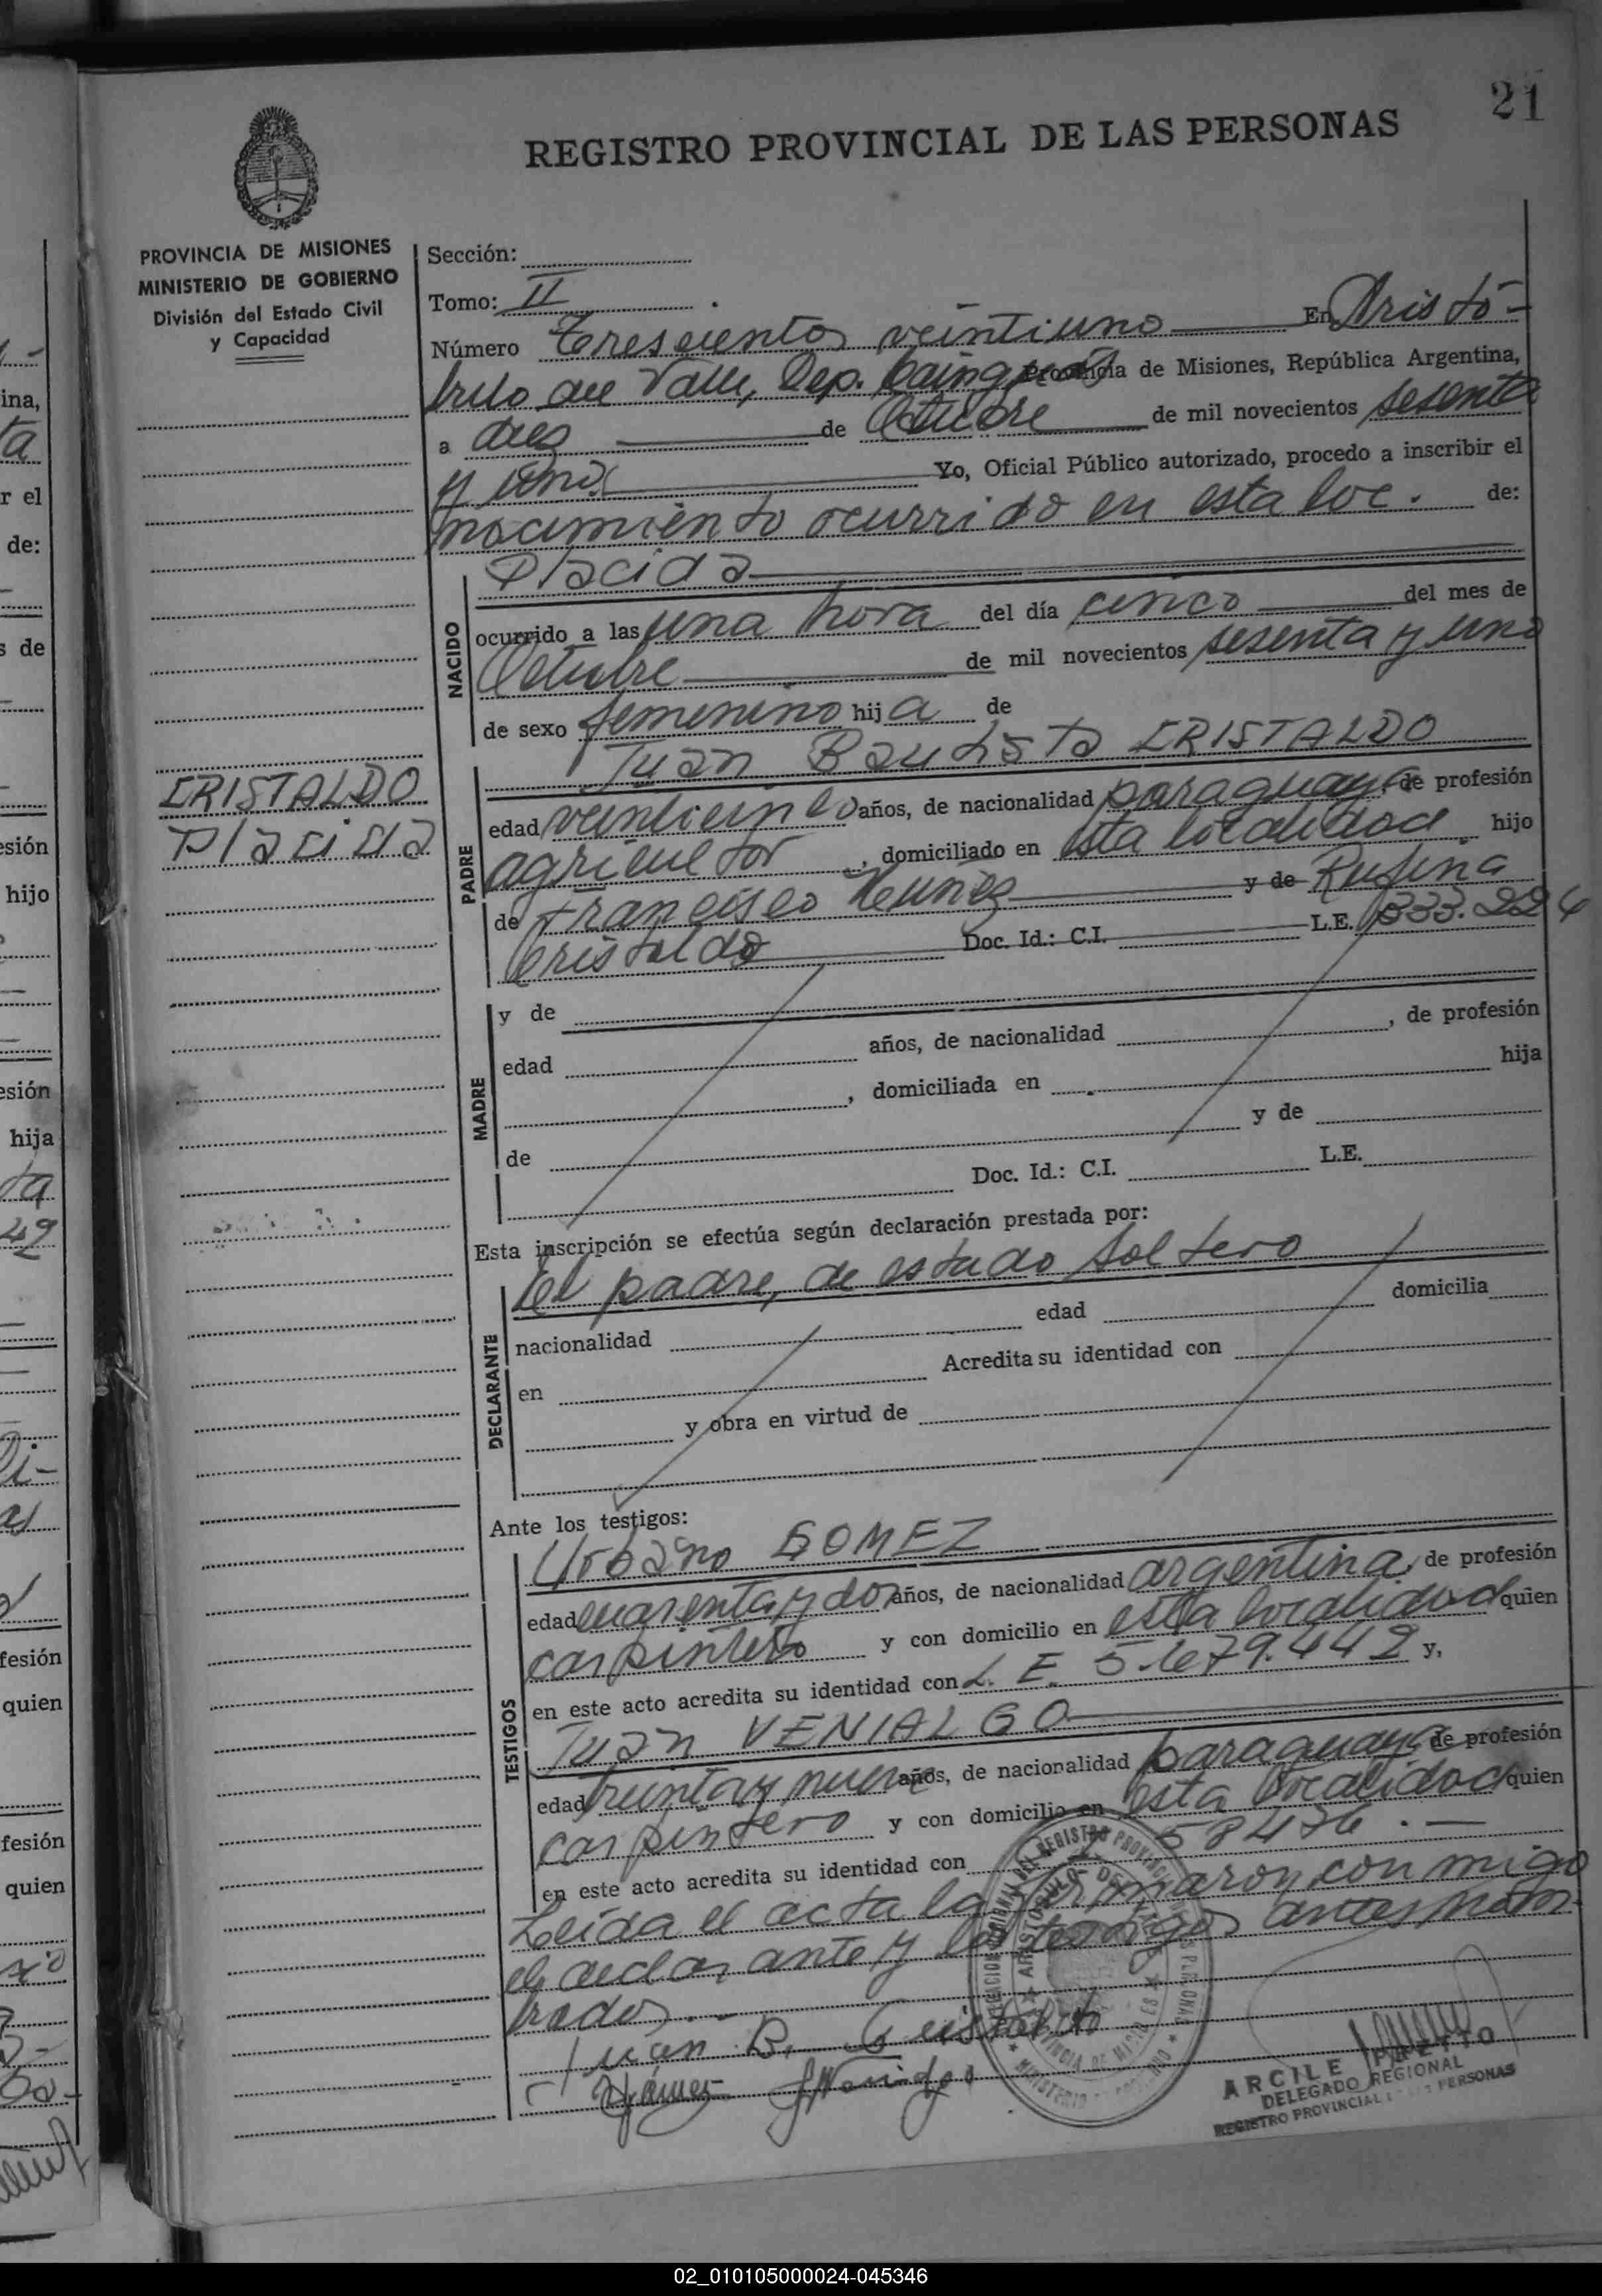 21
REGISTRO PROVINCIAL DE LAS PERSONAS
PROVINCIA DE MISIONES
MINISTERIO DE GOBIERNO
División del Estado Civil
y Capacidad
Sección:
Tomo: II
Número Trescientos veintiuno En Aristó-
bulo del Valle, Dep. Cainguás Provincia de Misiones, República Argentina,
a diez de Octubre de mil novecientos sesenta
y uno Yo, Oficial Público autorizado, procedo a inscribir el
nacimiento ocurrido en esta loc. de:
NACIDO
Placida
ocurrido a las una hora del día cinco del mes de
Octubre de mil novecientos sesenta y uno
de sexo femenino hija de
CRISTALDO
Placida
PADRE
Juan Bautista CRISTALDO
edad años, de nacionalidad paraguaya, de profesión
agricultor, domiciliado en esta localidad hijo
de Francisco Nuñez y de Rufina
Cristaldo Doc. Id.: C.I. L.E.
MADRE
y de
edad años, de nacionalidad , de profesión
, domiciliada en hija
de y de
Doc. Id.: C.I. L.E.
Esta inscripción se efectúa según declaración prestada por:
El padre, de estado soltero
DECLARANTE
nacionalidad edad domicilia
en Acredita su identidad con
y obra en virtud de
Ante los testigos:
TESTIGOS
Urbano GOMEZ
edad cuarenta y dos años, de nacionalidad argentina, de profesión
carpintero y con domicilio en esta localidad quien
en este acto acredita su identidad con L. E. 5.679.442 y,
Juan VENIALGO
edad treinta y nueve años, de nacionalidad paraguaya de profesión
carpintero y con domicilio en esta localidad quien
en este acto acredita su identidad con 58476.-
Leida el acta la firmaron conmigo
el declarante y los testigos antes nom-
brados.-
Juan B. Cristaldo
ARCILE PRETTO
DELEGADO REGIONAL
REGISTRO PROVINCIAL PERSONAS
02_010105000024-045346